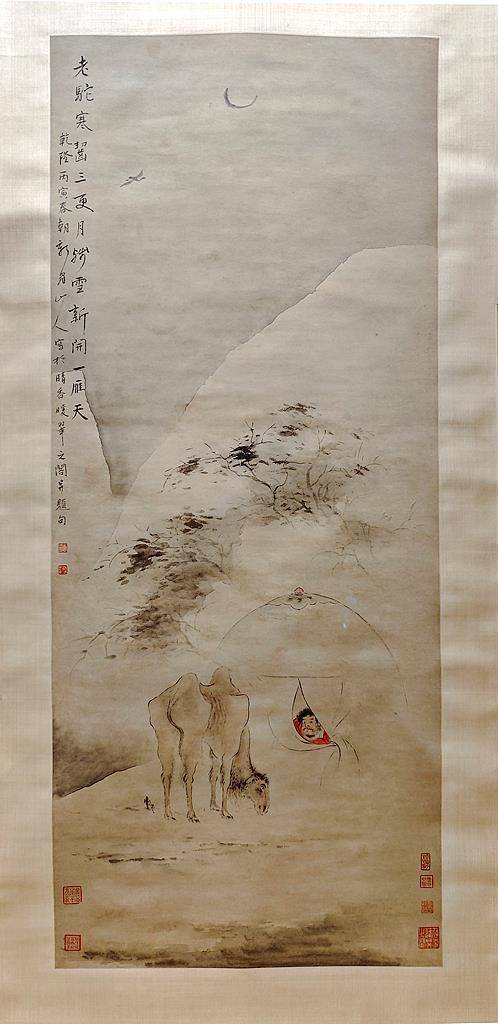 老駝寒齧三更月殘雪新開一雁天
乾隆丙寅春朝新羅山人寫於晴香暖翠之閣并題句